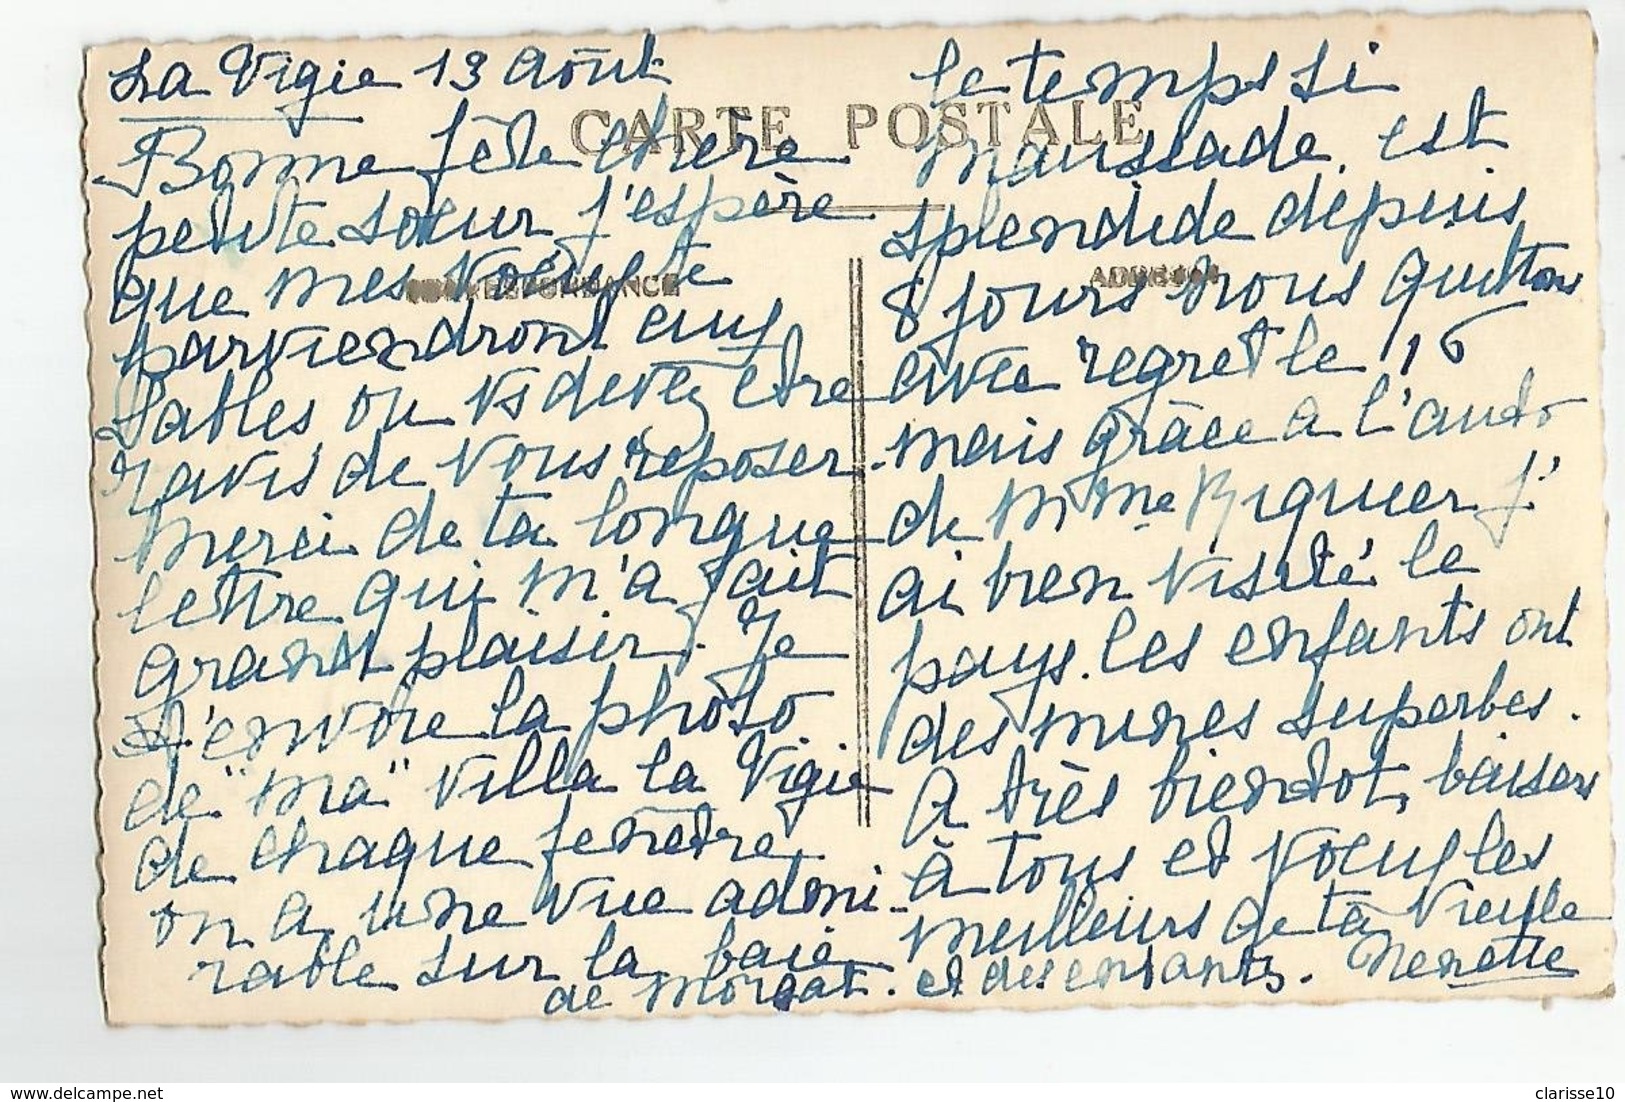 La Vigie 13 Août
CARTE POSTALE
Bonne fête chère
petite soeur j'espère
que mes voeux te
CORRESPONDANCE
parviendront aux
Sables ou vs devez être
ravis de vous reposer.
Merci de ta longue
lettre qui m'a fait
grand plaisir. Je
t'envoie la photo
de "ma" villa la Vigie
de chaque fenêtre
on a une vue admi-
rable sur la baie
de Morgat.
le temps si
maussade, est
splendide depuis
ADRESSE
8 jours nous quittons
avec regret le 16
mais grâce a l'auto
de Mme Riguier j'
ai bien visité le
pays. les enfants ont
des mines superbes.
A très bientot, baisers
à tous et voeux les
meilleurs de ta vieille
et des enfants. Nenette
www.delcampe.net
clarisse10